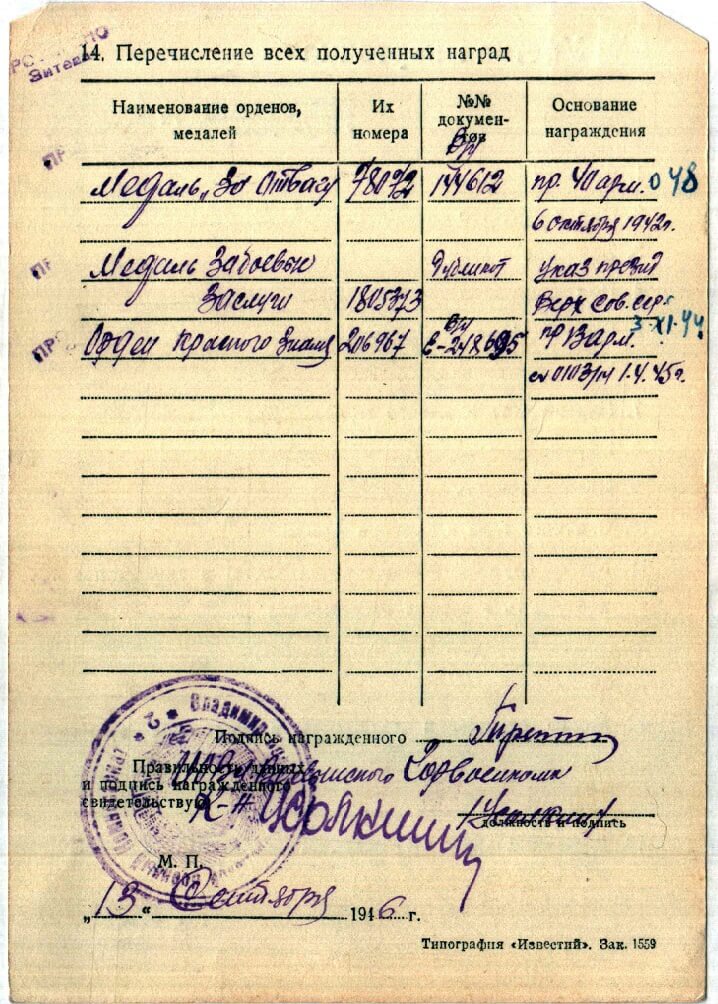 14. Перечисление всех полученных наград
Наименование орденов, медалей
Их номера
№№ документов
Основание награждения
Медаль „За Отвагу 780972 144612 пр. 40 арм. 048
6 октября 1942г.
Медаль За боевые Дубликат Указ през
Заслуги 1805373 Верх Сов. ссрг
3-XI-44
Орден Красного Знамя 206967 Е-248695 пр 3 арм.
0103/н 1.4.45г.
Подпись награжденного
Правильность данных
и подпись награжденного
свидетельствую
Горвоенкома
К-н Усалкин
должность и подпись
М. П.
„13“ Сентября 1946 г.
Типография «Известий». Зак. 1559